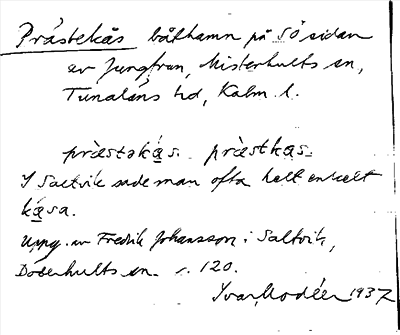 Prästekås båthamn på SÖ sidan
av Jungfrun, Misterhults sn,
Tunaläns hd, Kalm. l.
prästəkás. prästkas.
I Saltvik sade man ofta helt enkelt
kåsa.
Uppg. av Fredrik Johansson i Saltvik,
Döderhults sn. s. 120.
Ivar Modéer 1937